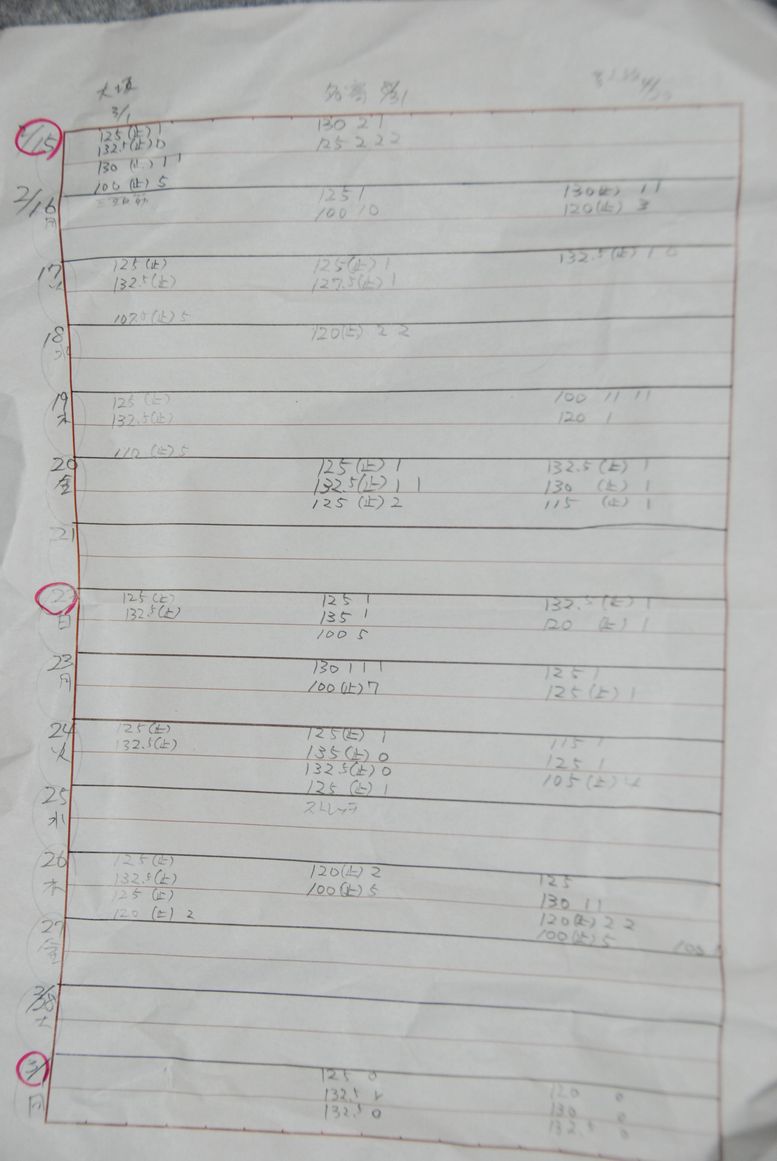 3/1
2/15
125(止) 1
132.5(止) 0
130 (止) 1 1
100 (止) 5
130 2 1
125 2 2 2
2/16
月
125 1
100 10
130(止) 1 1
120(止) 3
17
125(止)
132.5(止)
107.5(止) 5
125(止) 1
127.5(止) 1
132.5(止) 1 0
18
水
120(止) 2 2
19
木
125(止)
132.5(止)
110(止) 5
100 11 11
120 1
20
金
125(止) 1
132.5(止) 1 1
125 (止) 2
132.5(止) 1
130 (止) 1
115 (止) 1
21
22
日
125(止)
132.5(止)
125 1
135 1
100 5
132.5(止) 1
120 (止) 1
23
月
130 1 1 1
100(止) 7
125 1
125(止) 1
24
火
125(止)
132.5(止)
125(止) 1
135(止) 0
132.5(止) 0
125 (止) 1
115 1
125 1
105(止) 4
25
水
ストレッチ
26
木
125(止)
132.5(止)
125(止)
120(止) 2
120(止) 2
100(止) 5
125
130 11
120(止) 2 2
100(止) 5
27
金
2/28
土
3/1
125 0
132.5
132.5 0
120 0
130 0
132.5 0